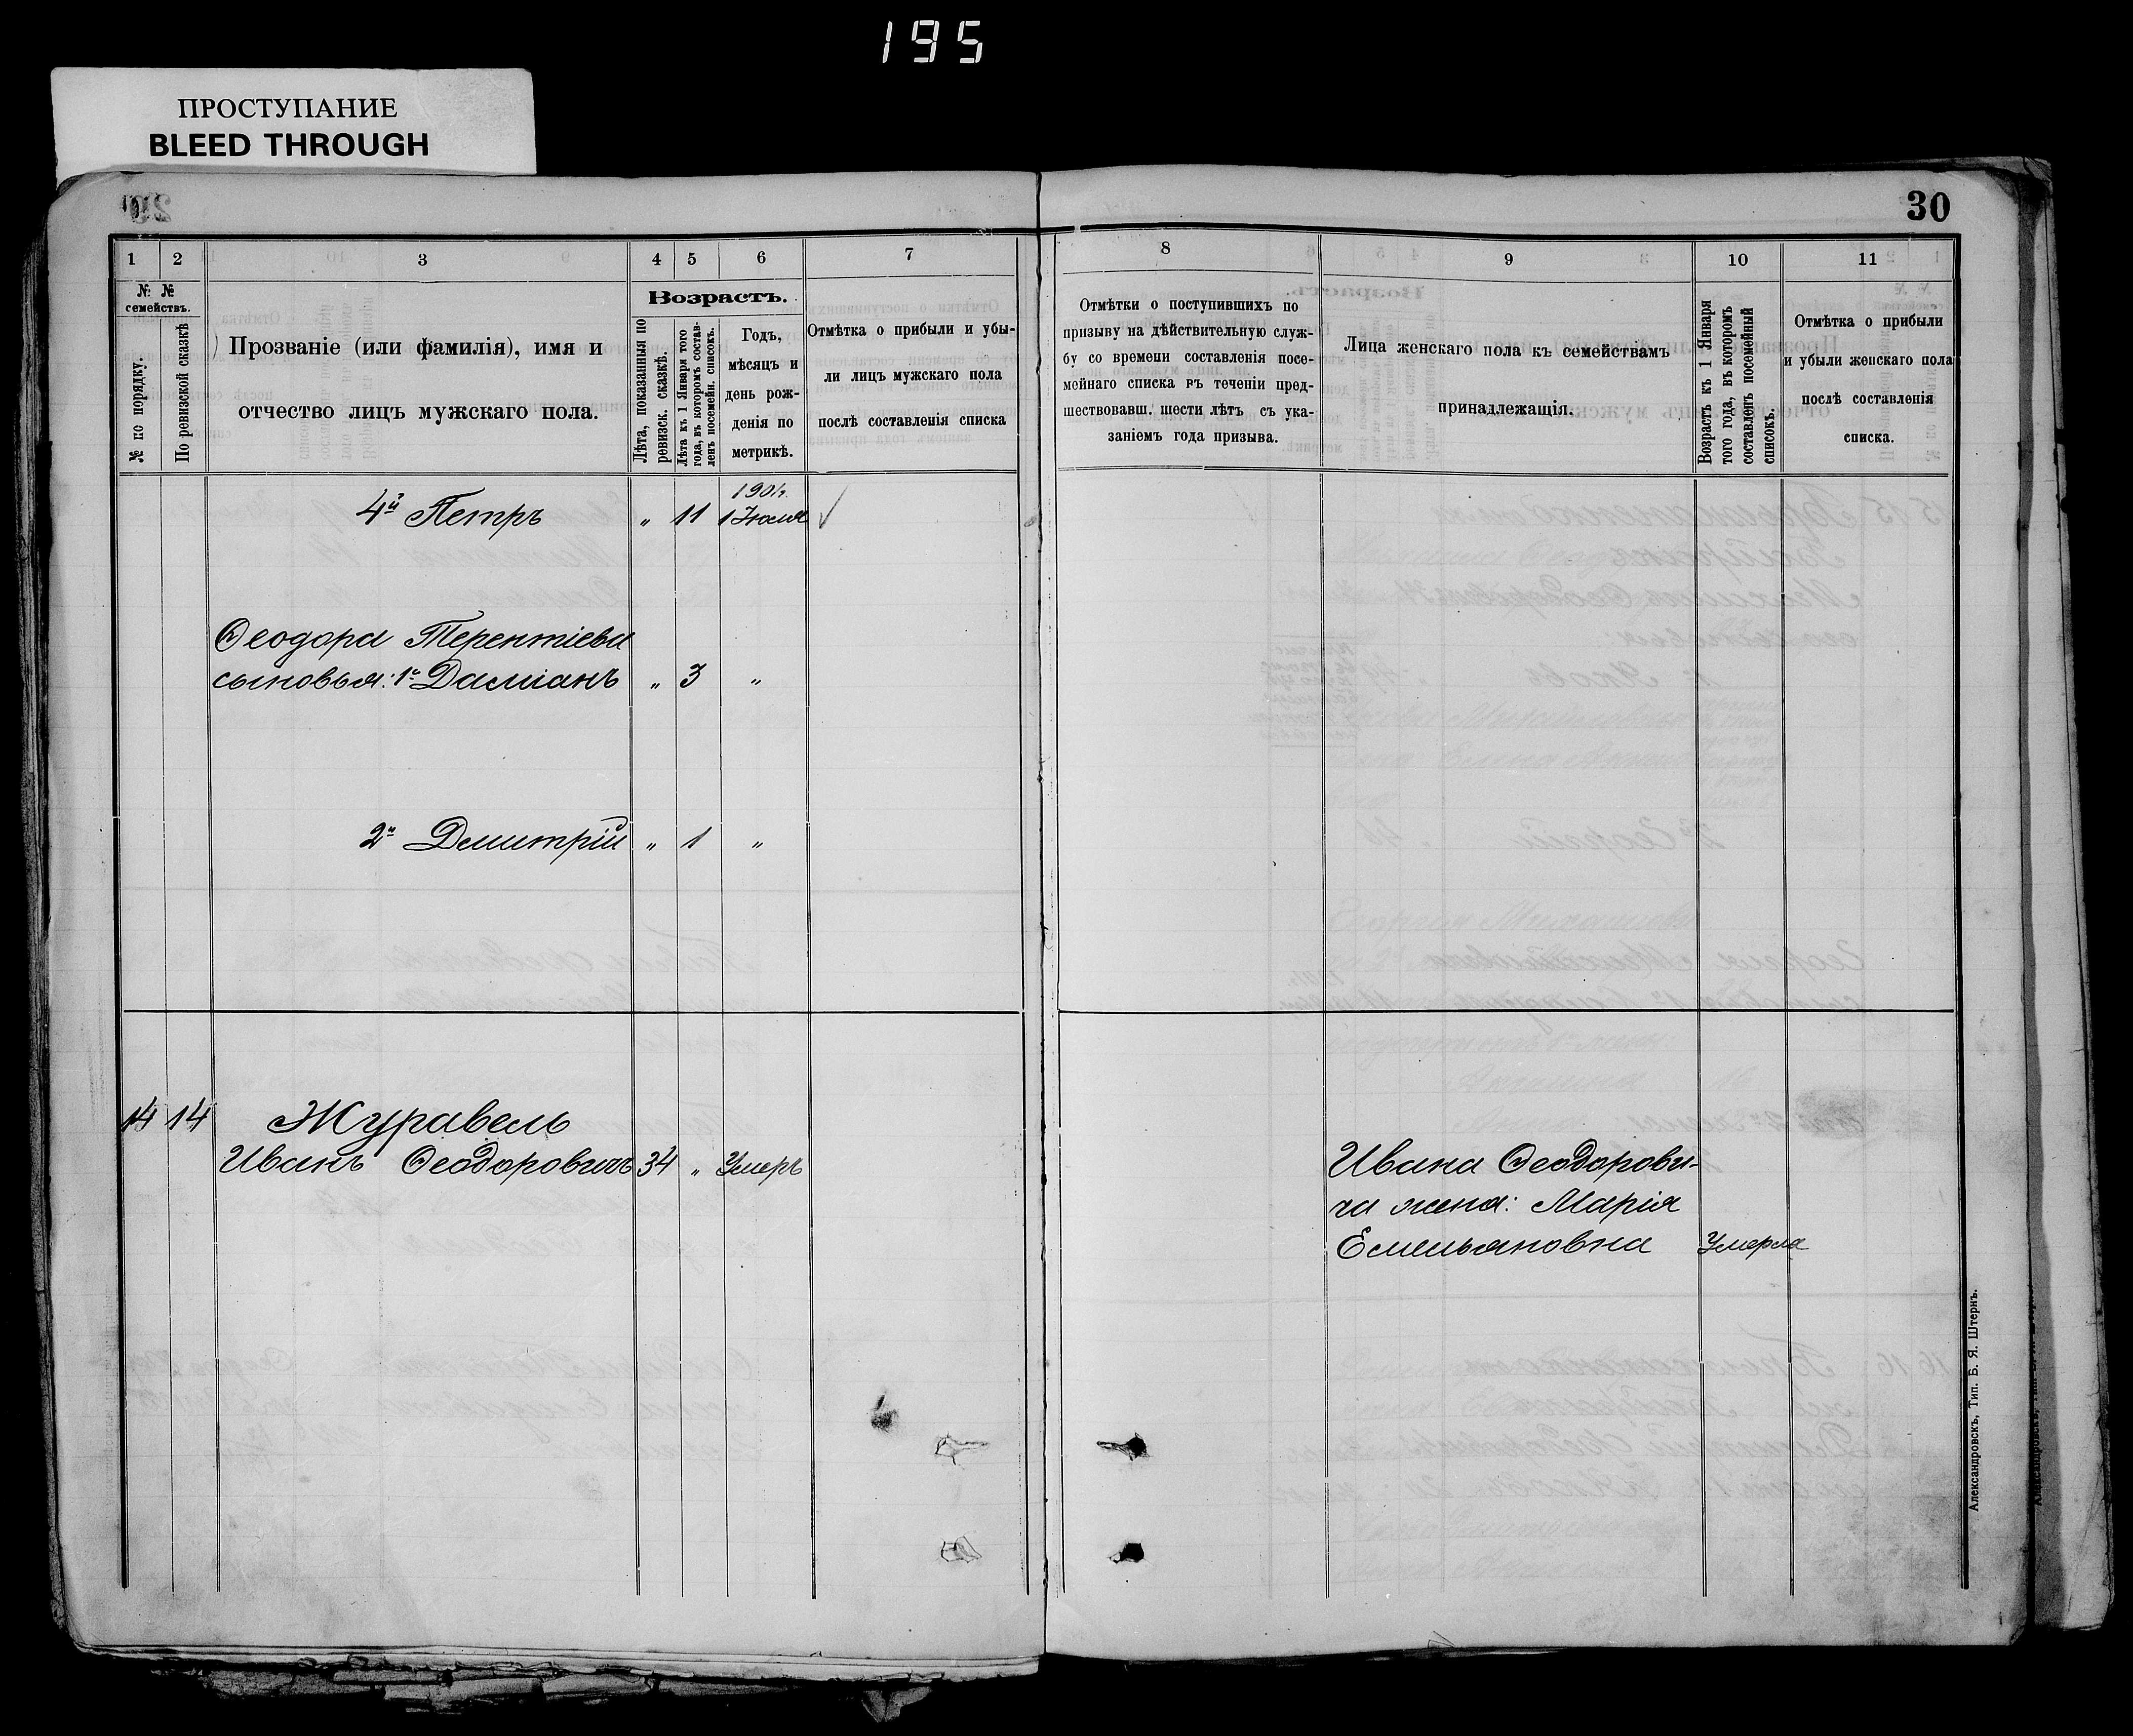 195
ПРОСТУПАНИЕ
BLEED THROUGH
30
1 2 3 4 5 6 7 8 9 10 11
№ №
семействъ.
№ по порядку.
По ревизской сказкѣ
Прозваніе (или фамилія), имя и
отчество лицъ мужскаго пола.
Возрастъ.
Лѣта, показанныя по
ревизск. сказкѣ.
Лѣта къ 1 Января того
года, въ которомъ состав-
ленъ посемейн. списокъ.
Годъ,
мѣсяцъ и
день рож-
денія по
метрикѣ.
Отмѣтка о прибыли и убы-
ли лицъ мужскаго пола
послѣ составленія списка
Отмѣтки о поступившихъ по
призыву на дѣйствительную служ-
бу со времени составленія посе-
мейнаго списка въ теченіи пред-
шествовавш. шести лѣтъ съ ука-
заніемъ года призыва.
Лица женскаго пола къ семействамъ
принадлежащія.
Возрастъ къ 1 Января
того года, въ которомъ
составленъ посемейный
списокъ.
Отмѣтка о прибыли
и убыли женскаго пола
послѣ составленія
списка.
1901г.
4й Петръ „ 11 1 Іюля
Ѳеодора Терентіева
сыновья: 1й Даміанъ „ 3 „
2й Дмитрій „ 1 „
14 14 Журавель
Иванъ Ѳеодоровичъ 34 „ Умеръ
Ивана Ѳеодорови-
ча жена: Марія
Емельяновна Умерла
Александровскъ, Тип. Б. Я. Штернъ.